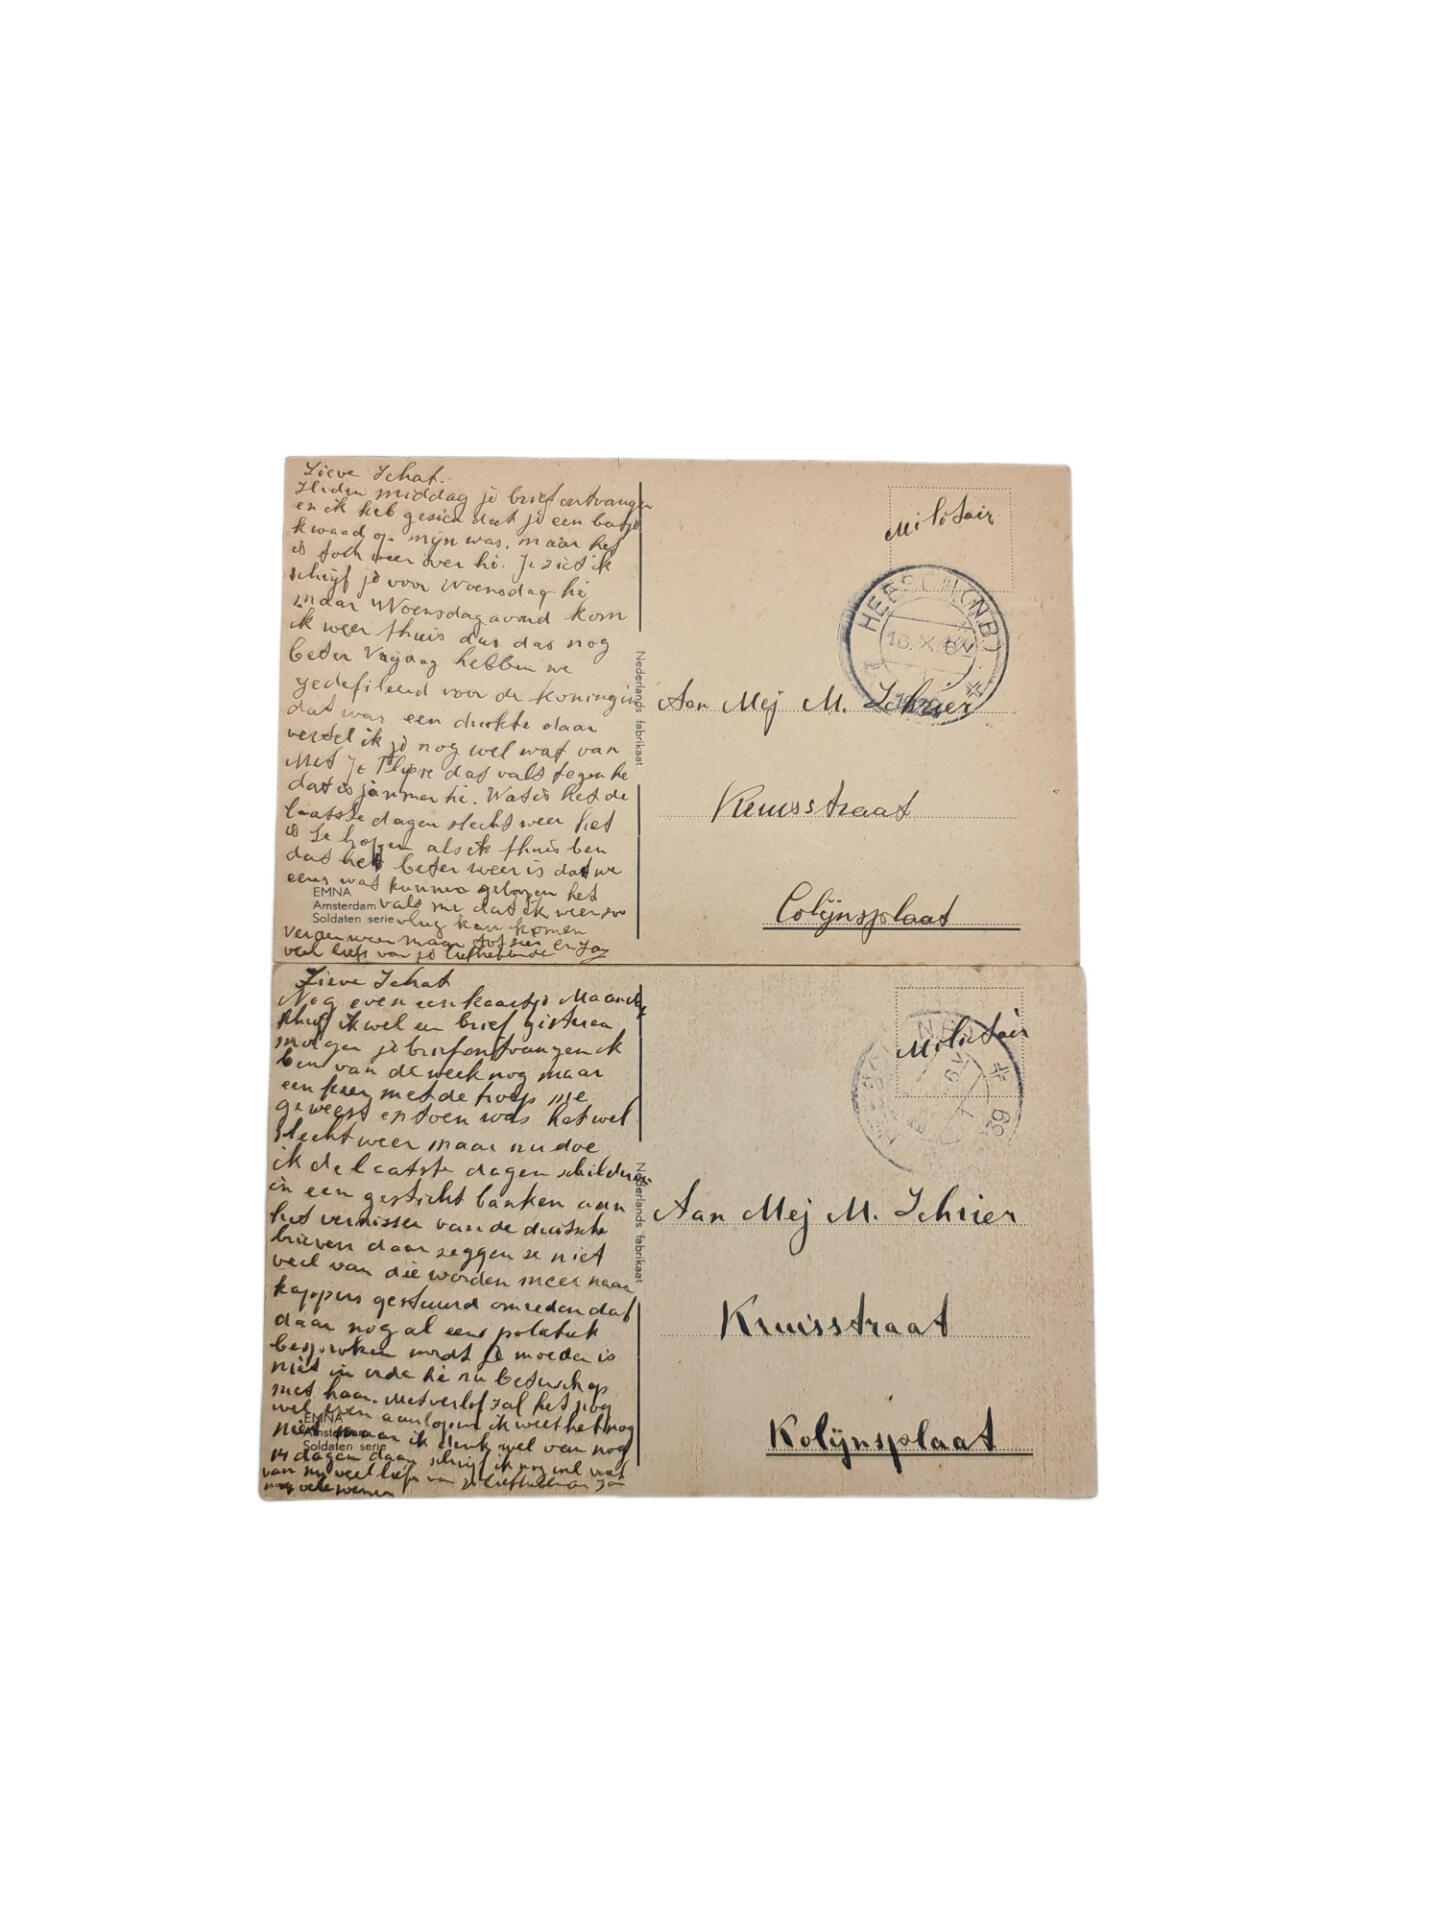 Lieve Schat.
Heden middag je brief ontvangen
en ik heb gezien dat je een beetje
kwaad op mijn was, maar het
is toch weer over hé. Je ziet ik
schrijf je voor Woensdag hé
maar Woensdagavond kom
ik weer thuis dus das nog
beter Vrijdag hebben we
gedefileerd voor de koningin
dat was een drukte daar
vertel ik je nog wel wat van
Met Je dat valt tegen he
dat is jammer hé. Wat is het de
laatste dagen slecht weer het
is te hopen als ik thuis ben
dat het beter weer is dat we
eens wat kunnen het
valt me dat ik weer zoo
vlug kan komen
weer maar tot zien
veel liefs van je liefhebbende Jan
EMNA
Amsterdam
Soldaten serie
Nederlands fabrikaat
Militair
HEESCH (N.B.)
16.X. 6V
1939
Aan Mej M. Schrier
Kruisstraat
Colijnsplaat
Lieve Schat
Nog even een kaartje Maandag
schrijf ik wel een brief gisteren
morgen je brief ontvangen ik
ben van de week nog maar
een keer met de troep me
geweest en toen was het wel
slecht weer maar nu doe
ik de laatste dagen schilderen
in een gesticht banken aan
het vernissen van de duitsche
brieven daar zeggen ze niet
veel van die worden meer naar
kappers gestuurd omreden dat
daar nog al eens politiek
besproken wordt je moeder is
niet in orde hé nu beterschap
met haar. Met verlof zal het nog
wel even aanlopen ik weet het nog
niet maar ik denk wel van nog
14 dagen daar schrijf ik nog wel wat
van nu veel liefs van je liefhebbende Jan
EMNA
Amsterdam
Soldaten serie
Nederlands fabrikaat
Militair
6V
39
Aan Mej M. Schrier
Kruisstraat
Kolijnsplaat